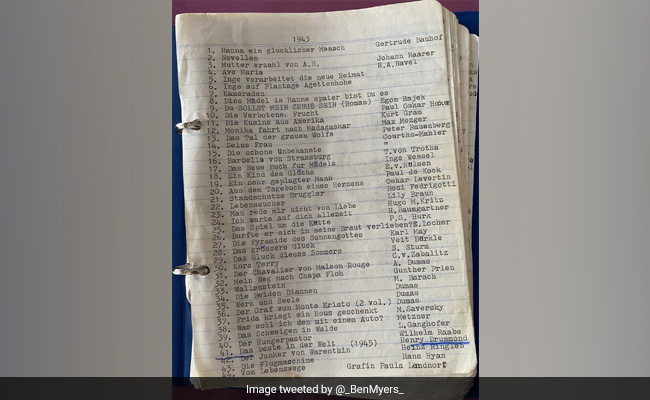 1943
1. Hanna ein glucklicher Mensch Gertrude Bauhof
2. Novellen
3. Mutter erzahl von A.H. Johann Haarer
4. Ave Maria H.A.Havel
5. Inge verarbeitet die neue Heimat
6. Inge auf Plantage Agettenhohe
7. Kameraden
8. Dies Mädel is Hanne später bist Du es
9. Du SOLLST MEIN EHRE SEIN (Roman) Egon Hajek
10. Die Verbotene Frucht Paul Oskar Hoker
11. Die Kusine aus Amerika Kurt Gram
12. Monika fahrt nach Madagaskar Max Mezger
13. Das Tal der grauen Wolfe Peter Rausenberg
14. Seine Frau Courths-Mahler
15. Die schone Unbekannte "
16. Barbelo von Strassburg T.von Trotha
17. Das Neue Buch fur Mädels Inge Wessel
18. Ein Kind des Glücks E.v.Hulsen
19. Ein sehr geplagter Mann Paul de Kock
20. Aus dem Tagebuch eines Herzens Oskar Levertin
21. Standschutze Bruggler Bosi Fedrigotti
22. Lebenssucher Lily Braun
23. Man rede mir nicht von Liebe Hugo M.Kritz
24. Ich warte auf dich allezeit H.Baumgartner
25. Das Spiel um die Kette P.S. Hurk
26. Durfte er sich in seine Braut verlieben?E.Locher
27. Die Pyramide des Sonnengottes Karl May
28. Das grössere Gluck Veit Bürkle
29. Das Gluck dieses Sommers S. Sturz
30. Kora Terry C.v.Zabalitz
31. Der Chavalier von Maison Rouge A. Dumas
32. Mein Weg nach Chapa Floh Gunther Prien
33. Wallenstein M. Barach
34. Die Beiden Diannen Dumas
35. Werk und Seele Dumas
36. Der Graf von Monte Kristo (2 vol.) Dumas
37. Frida kriegt ein Haus geschenkt M.Saversky
38. Was soll ich den mit einem Auto? Metzner
39. Das Schweigen in Walde L.Ganghofer
40. Der Hungerpastor Wilhelm Raabe
41. Das beste in der Welt (1945) Henry Drummond
42. Der Junker von Warenthin Heinz Ringles
43. Die Flugmaschine Hans Hyan
44. Vom Lebenswege Grafin Paula
Image tweeted by @_BenMyers_